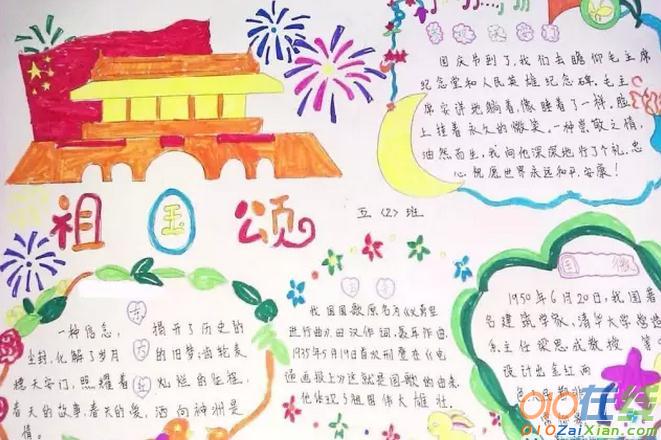 国庆节到了，我们去瞻仰毛主席
纪念堂和人民英雄纪念碑，毛主
席安详地躺着，像睡着了一样，脸
上挂着永久的微笑，一种崇敬之情，
油然而生，我向他深深地行了个礼，忠
心祝愿世界永远和平、安康！
祖国颂
五〈2〉班
一种信念，
揭开了历史的
尘封，化解了岁月
的旧梦；齿轮表
天安门，照耀着
灿烂的征程，
春天的故事，春天的爱，洒向神州是
情
我国国歌原名为《义勇军
进行曲》，田汉作词，聂耳作曲，
1935年5月19日首次刊登在《电
通画报上》这就是国歌的由来，
他体现了祖国伟大雄壮。
国徽
1950年6月20日，我国著
名建筑学家，清华大学营造
系主任梁思成教授
设计出金红两
010在线
010ZaiXian.com